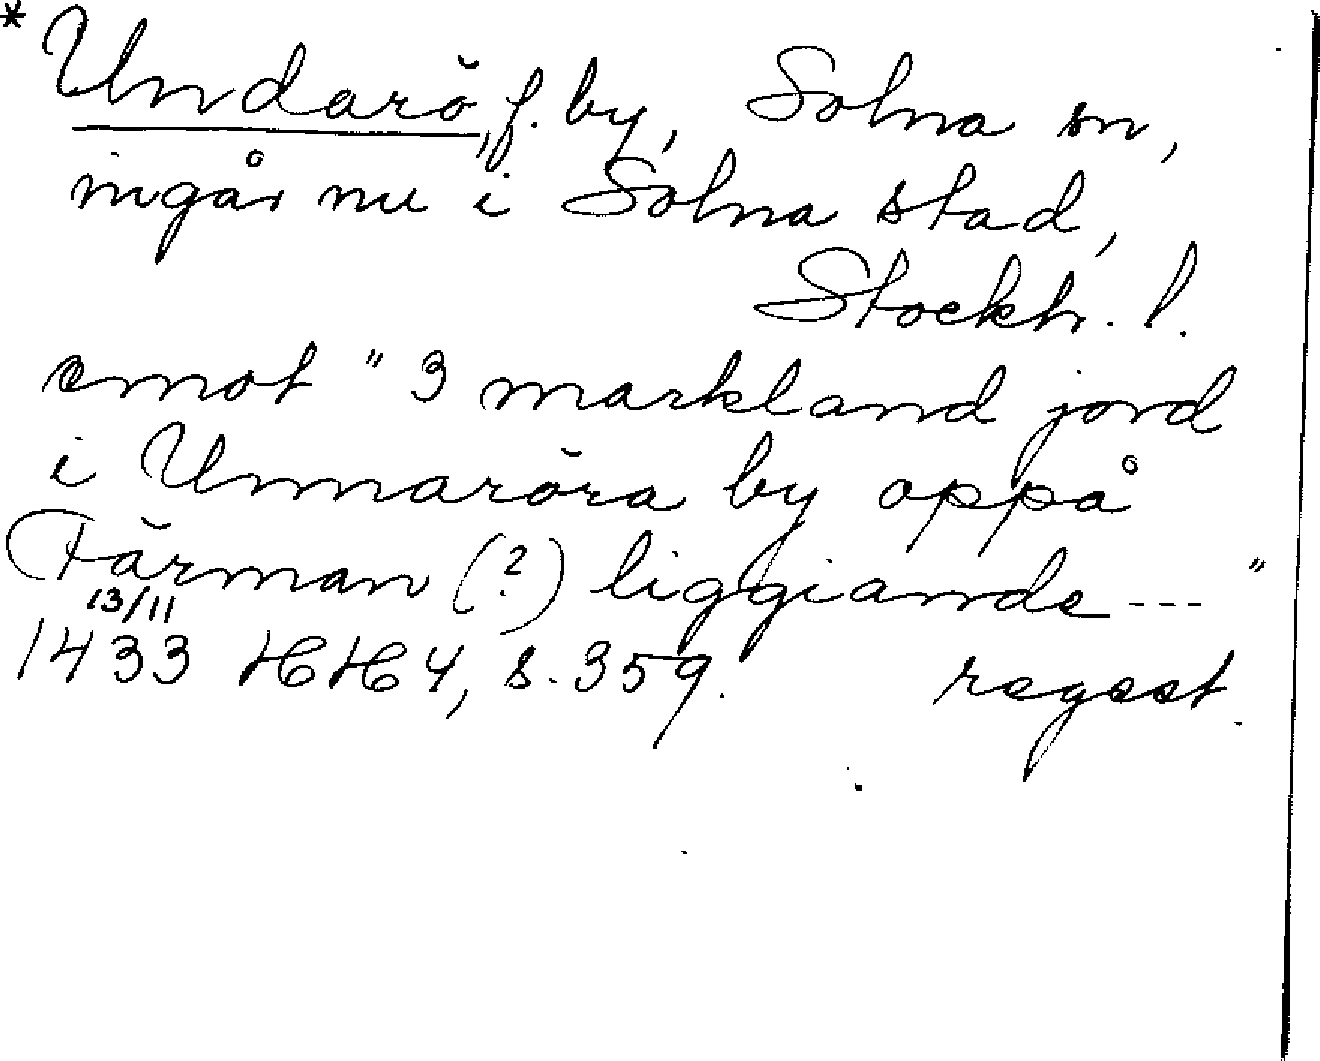 * Undarö, f. by, Solna sn,
ingår nu i Solna stad,
Stockh. l.
emot "3 markland jord
i Unnaröra by oppå
Färman (?) liggiande --- "
13/11
1433 HH 4, s. 359. regest.